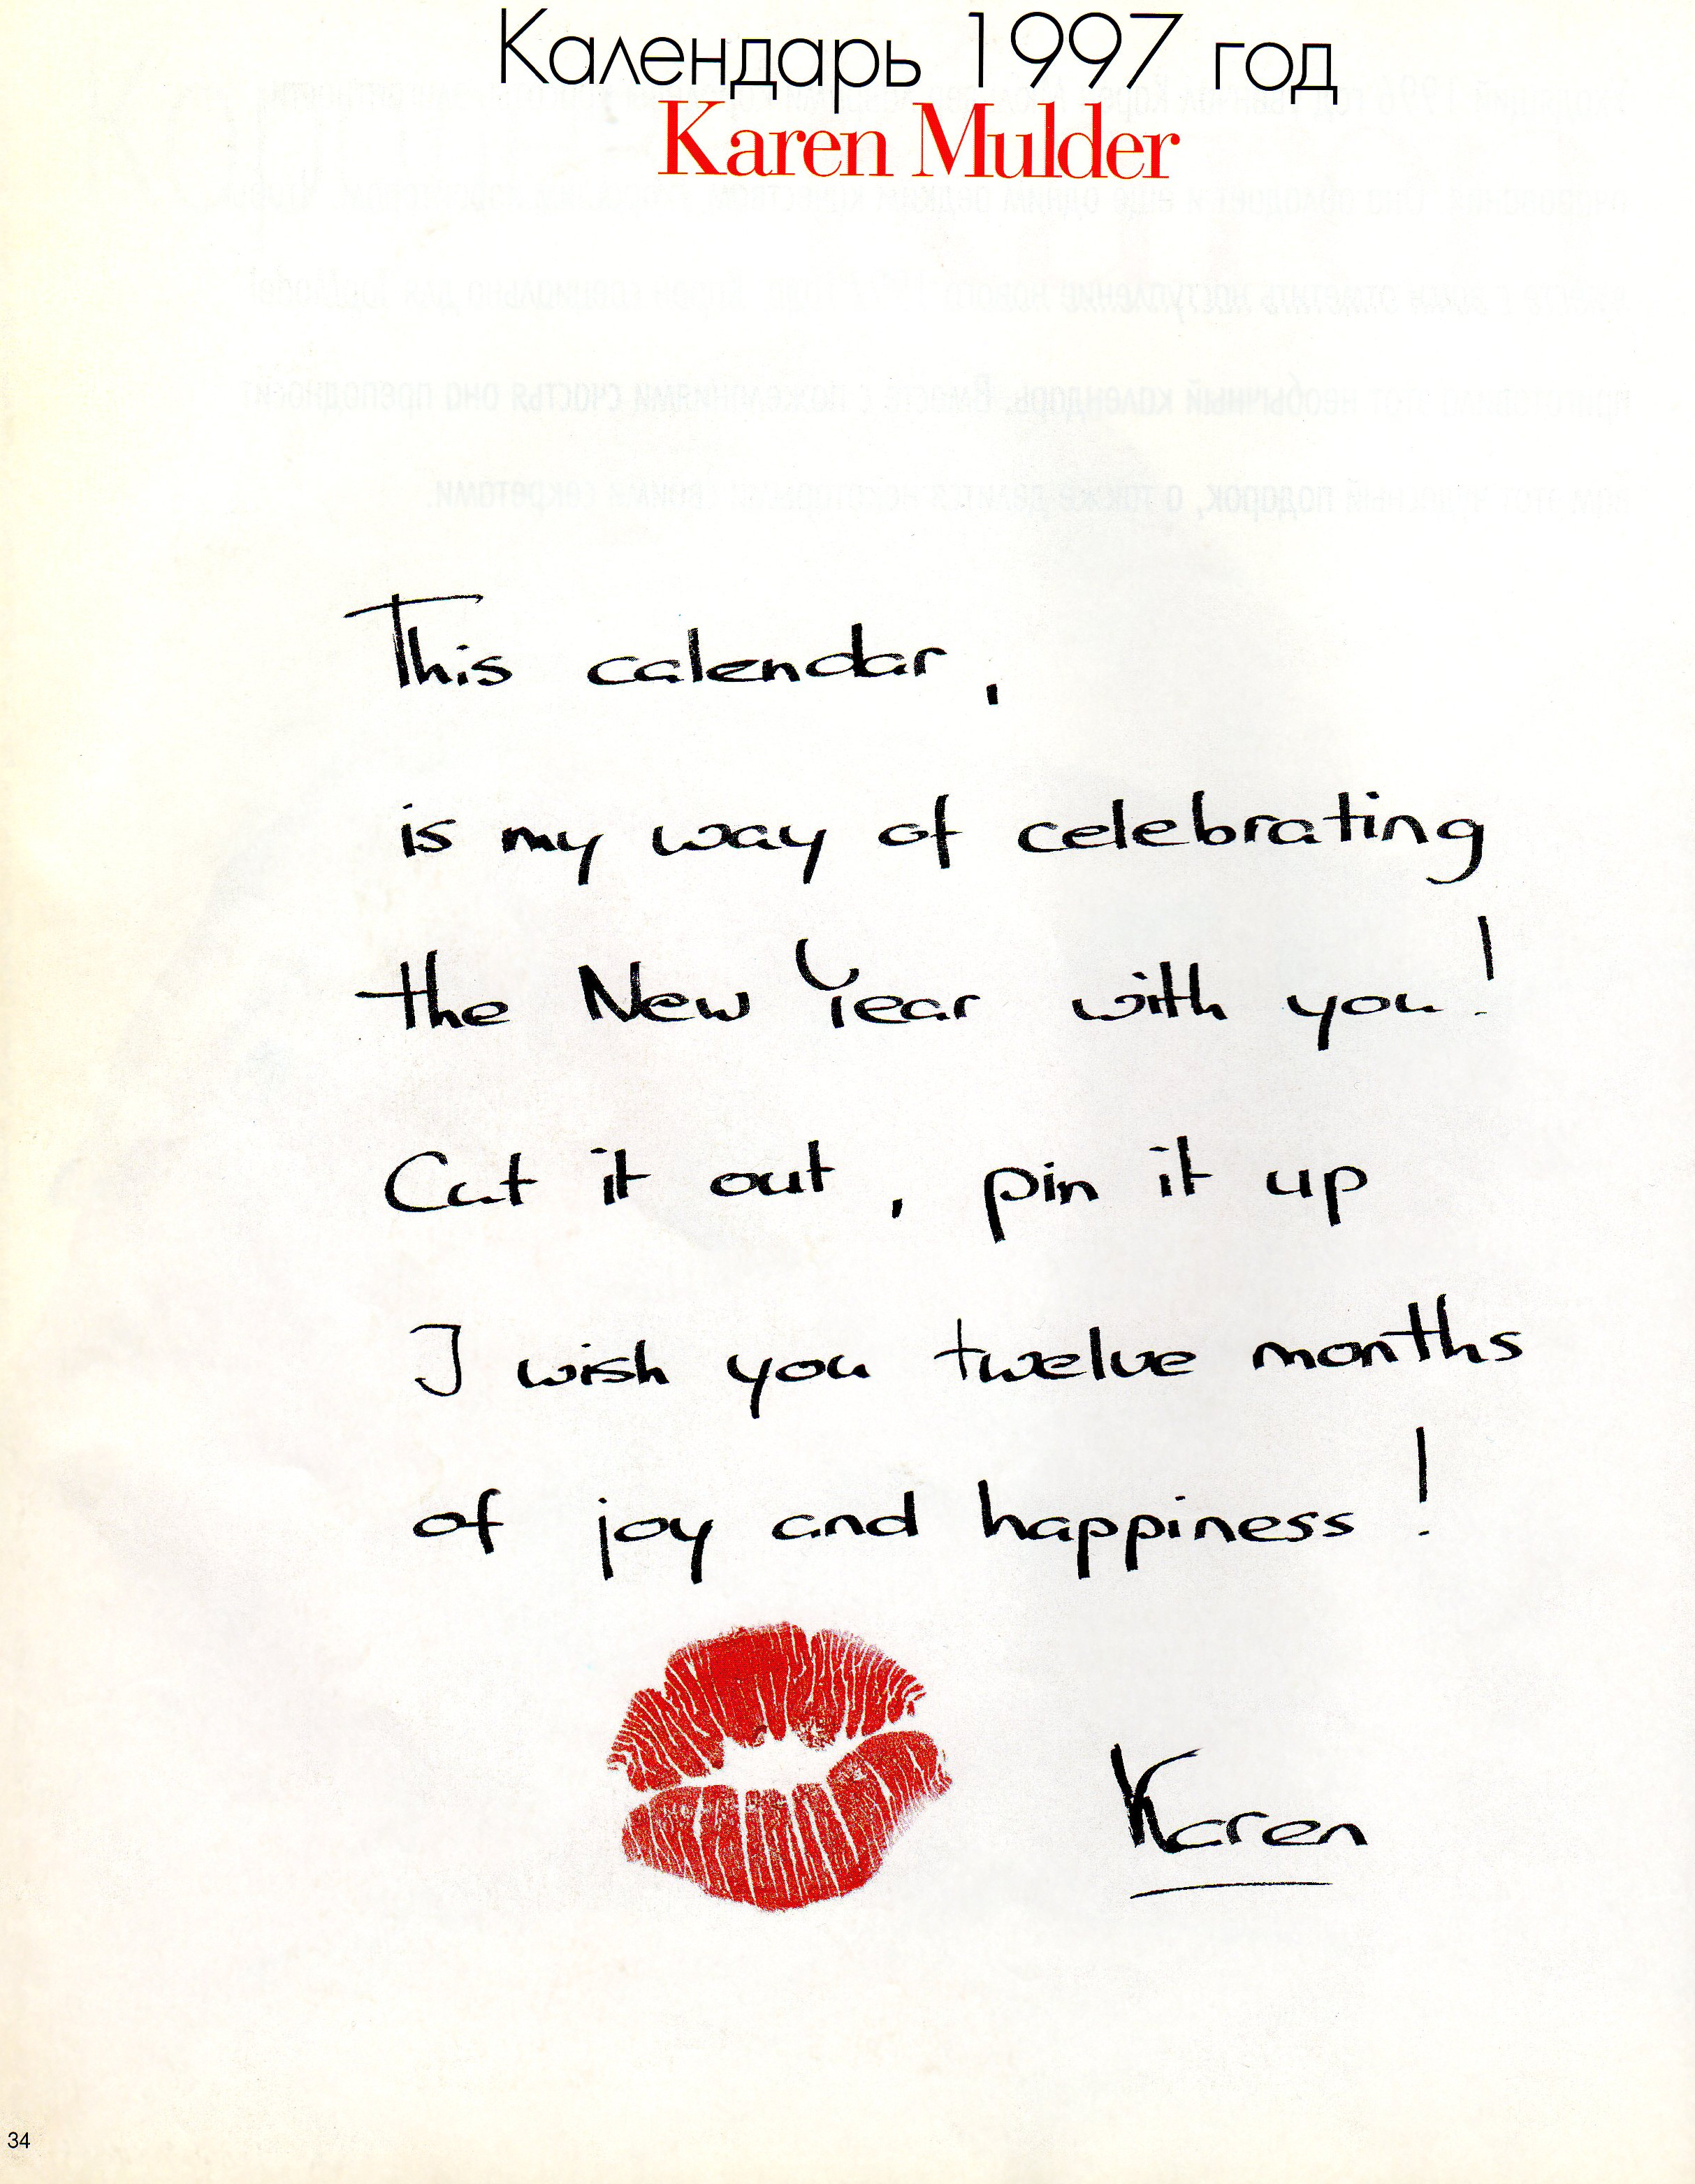 Календарь 1997 год
Karen Mulder
This calendar,
is my way of celebrating
the New Year with you!
Cut it out, pin it up
I wish you twelve months
of joy and happiness!
Karen
34